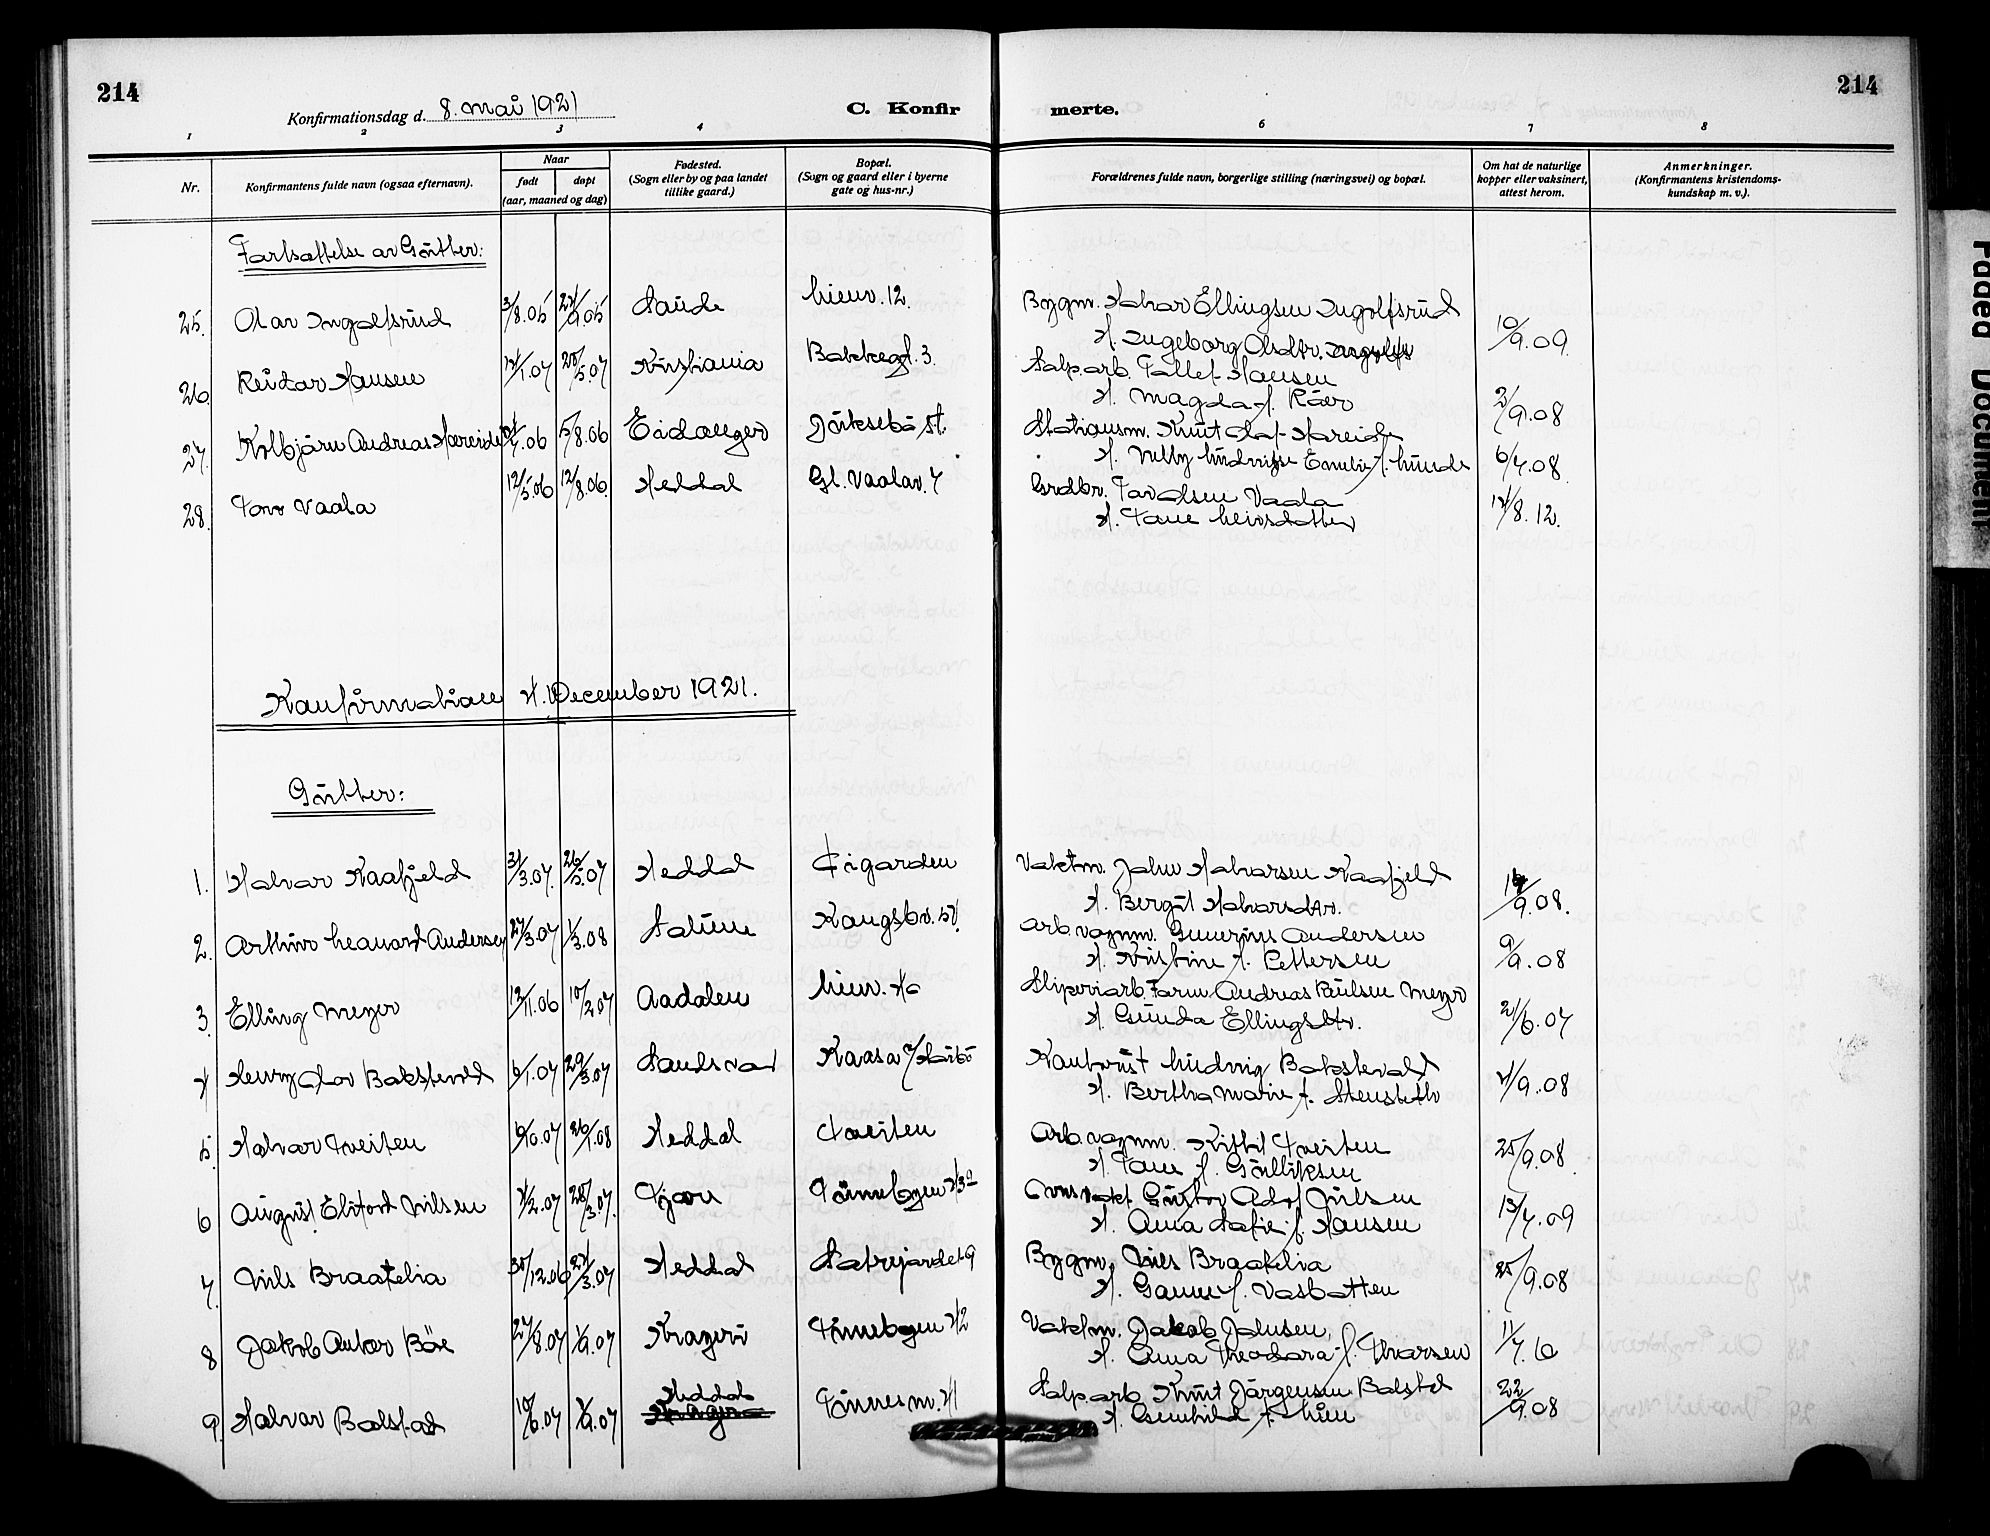 214
Konfirmationsdag d. 8. mai 1921
C. Konfirmerte.
214
1 2 3 4 6 7 8
Nr.
Konfirmantens fulde navn (ogsaa efternavn).
Naar
født
døpt
(aar, maaned og dag)
Fødested.
(Sogn eller by og paa landet
tillike gaard.)
Bopæl.
(Sogn og gaard eller i byerne
gate og hus-nr.)
Forældrenes fulde navn, borgerlige stilling (næringsvei) og bopæl.
Om hat de naturlige
kopper eller vaksinert,
attest herom.
Anmerkninger.
(Konfirmantens kristendoms-
kundskap m. v.).
Fortsættelse av Gutter:
25. Olav Ingolfsrud 3/8.05 Saude Lienv. 12. Bygm. Halvor Ellingsen Ingolfsrud 10/9.09
H. Ingeborg Olsdtr.
26. Reidar Hansen 20/5.07 Kristiania Bakkegt. 3. Salp.arb. Tallef Hansen
H. Magda f. 2/9.08
27. Kolbjørn Andreas Hareide 5/8.06 Eidanger st. Stationsm. Knut Olaf Hareide
H. Nelly Ludvigge Emelie f. Lunde 6/7.08
28. Tov Vaala 12/5.06 12/8.06 Heddal Gl. Vaalav. 7 Grdbr. Tov Olsen Vaala
H. Tone Leivsdatter 14/8.12.
Konfirmation 4. December 1921.
Gutter:
1. Halvor Kaafjeld 31/3.07. 26/5.07 Heddal Tigarden Vaktm. John Halvorsen Kaafjeld
H. Bergit Halvorsdtr. /9.08.
2. Arthur Leonard Andersen 27/3.07 1/3.08 Solum Kongsbv. 54. Arb. vognm. Gunerius Andersen
H. Kristine f. Pettersen 9/9.08
3. Elling Meyer 13/11.06 10/2.07 Aadalen Lienv. Sliperiarb. Tarm Andreas Paulsen Meyer
H. Gunda Ellingsdtr. 21/6.07
4 Henry Olav Bakstevold 6/1.07 29/3.07 Sandsvær Kaasa Kontorist Ludvig Bakstevold
H. Bertha Marie f. 4/9.08
5. Halvor Tveiten 6/10.07 26/1.08 Heddal Tveiten Arb. vognm. Kittil Tveiten
H. Tone f. Gulliksen 25/9.08
6 August Eliford Nilsen 4/2.07 28/3.07. Tinnebyen Gustav Adolf Nilsen
H. Anna Sofie f. Hansen 13/7.09
7. Nils Braatelia 30/12.06 24/3.07 Heddal Sætrejordet 9 Bygm. Nils Braatelia
H. Gunne f. Vasbotten 25/9.08
8 Jakob Anker Bøe 27/8.07 1/9.07 Kragerø Tinnebyen 42 Vaktm. Jakob Johnsen,
H. Anna Theodora f. Thorsen 11/7.16
9. Halvor Bolstad 10/6.07 1/9.07 Heddal Tinnesm. 41 Salp.arb. Knut Jørgensen Bolstad
H. Gunhild f. Lien 22/9.08
Faded Document